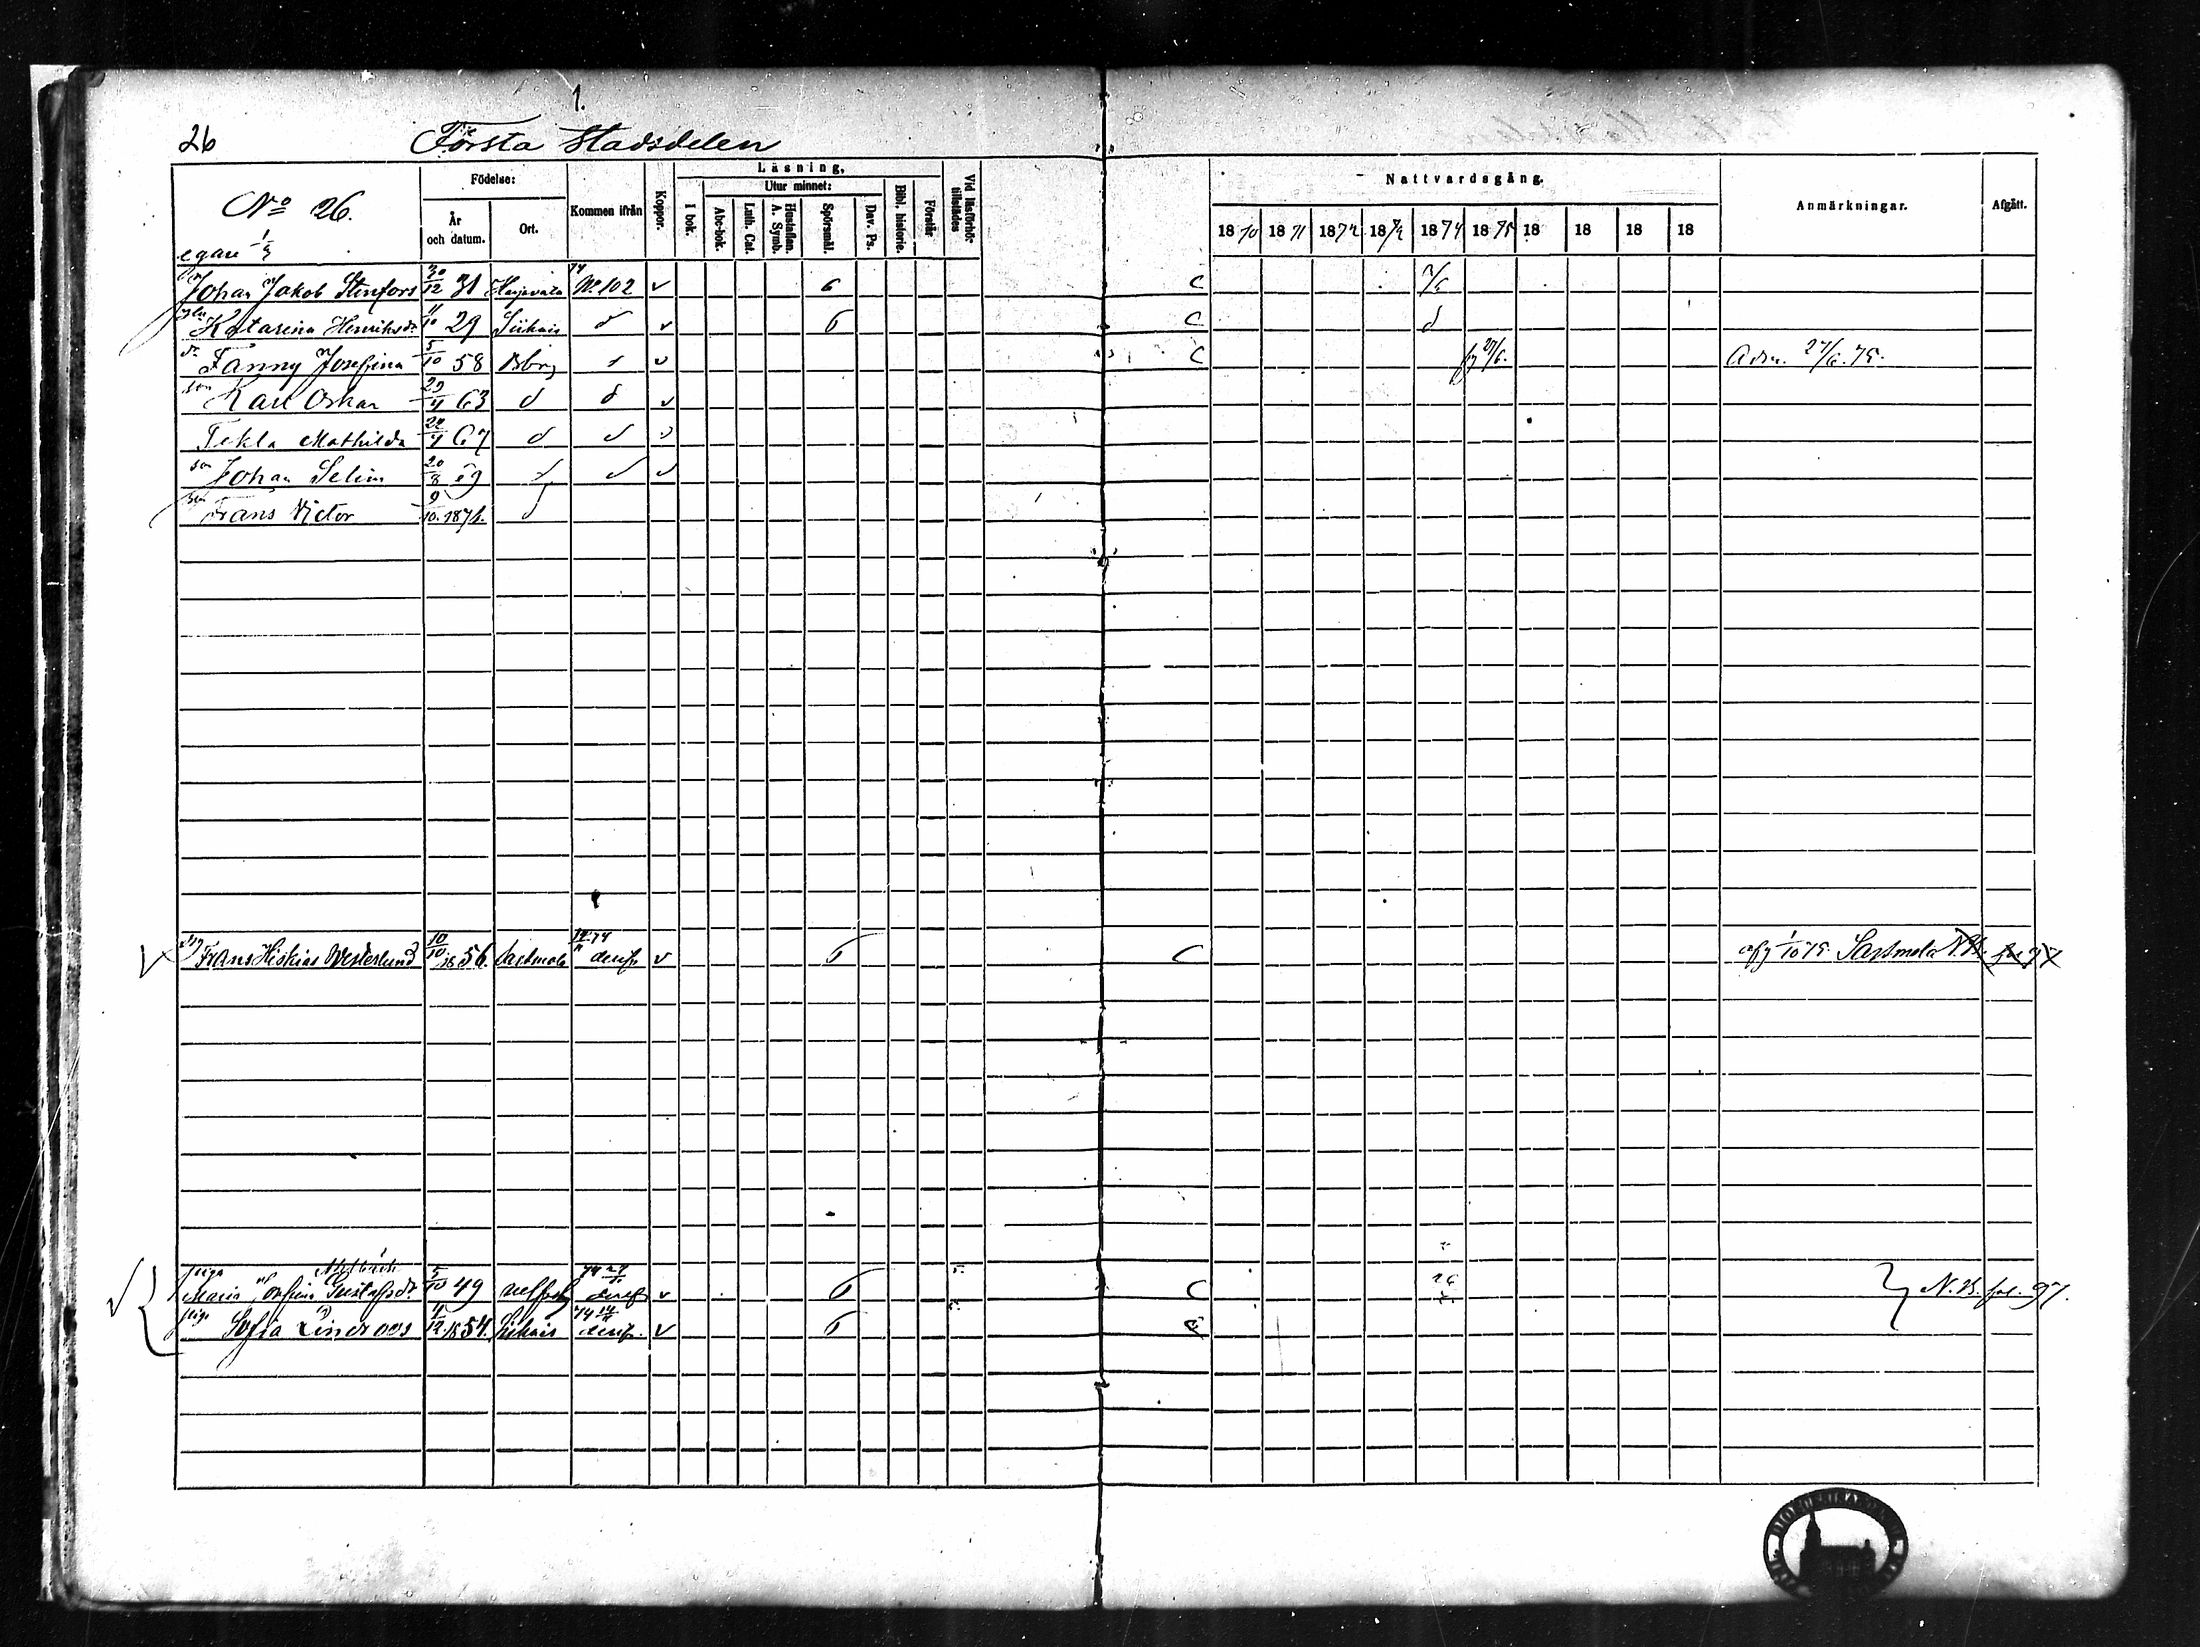 1.
26 Första Stadsdelen
Nº 26.
egare 1/3
Födelse:
År och datum.
Ort.
Kommen ifrån
Koppor.
Läsning,
I bok.
Utur minnet:
Abc-bok.
Luth. Cat.
Hustaflan. A. Symb.
Spörsmål.
Dav. Ps.
Bibl. historie.
Förstår
Vid läsförhör tillstädes
Nattvardsgång.
18 70 18 71 1872 18 74 18 75 18 18 18 18
Anmärkningar.
Afgått.
Johan Jakob Stenfors 30/12 31 Harjavalla 74 Nº 102 v 6 C 7/6
Katarina Henriksdr 11/10 29 Siikais d v 6 C d
dr Fanny Josefina 5/10 58 Bbrg d v C 27/6 Adm. 27/6. 75.
son Karl Oskar 29/4 63 d d v
Tekla Mathilda 24/4 67 d d v
son Johan Selim 20/8 69 d d v
son Frans Victor 9/10 187 d
Frans Hiskias Westerlund 10/10 1856 Sastmola 74 v 6 C afg 1/10 75 Sastmola N.B. fol 97
piga Maria Josefina Gustafsdr 5/10 49 Ulfsby 74 v 6 C N.B. fol. 97.
piga Sofia Lindroos 4/12 1854. Siikais 74 v 6 C